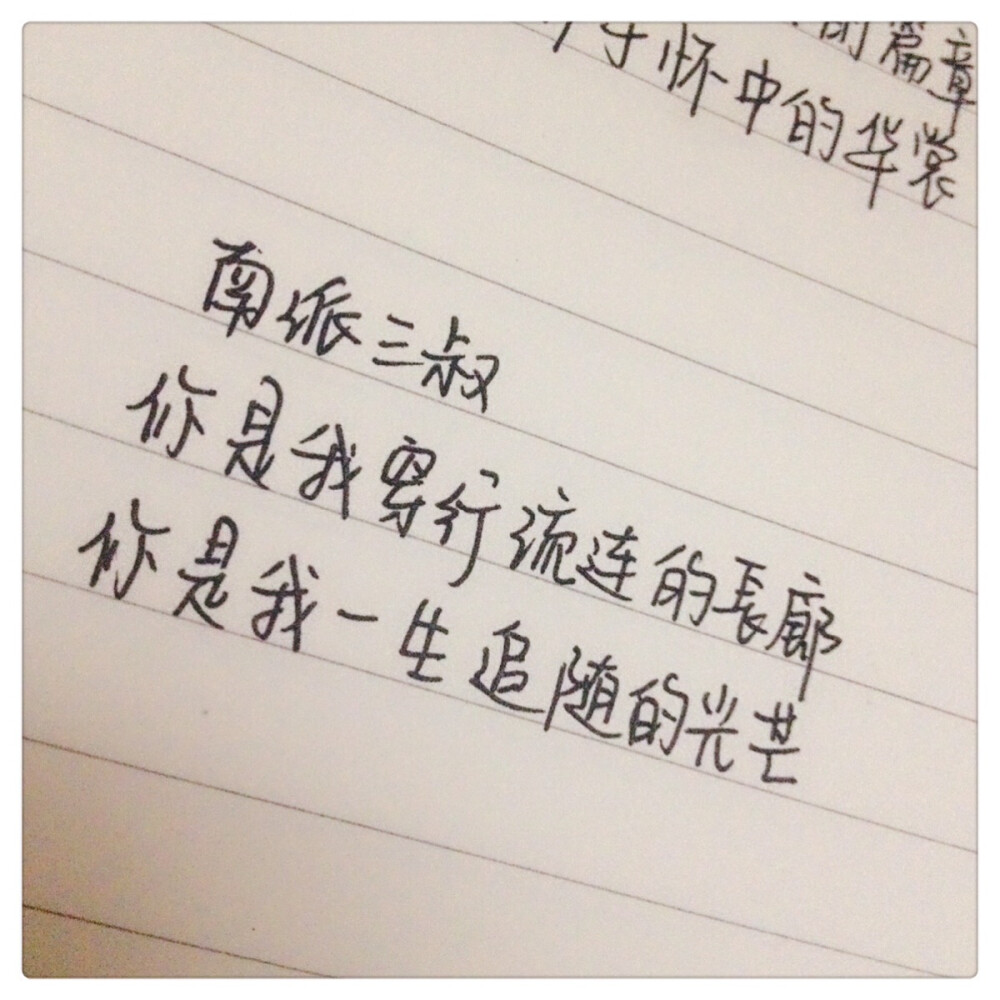 的篇章
于怀中的华裳
南派三叔
你是我穿行流连的長廊
你是我一生追随的光芒